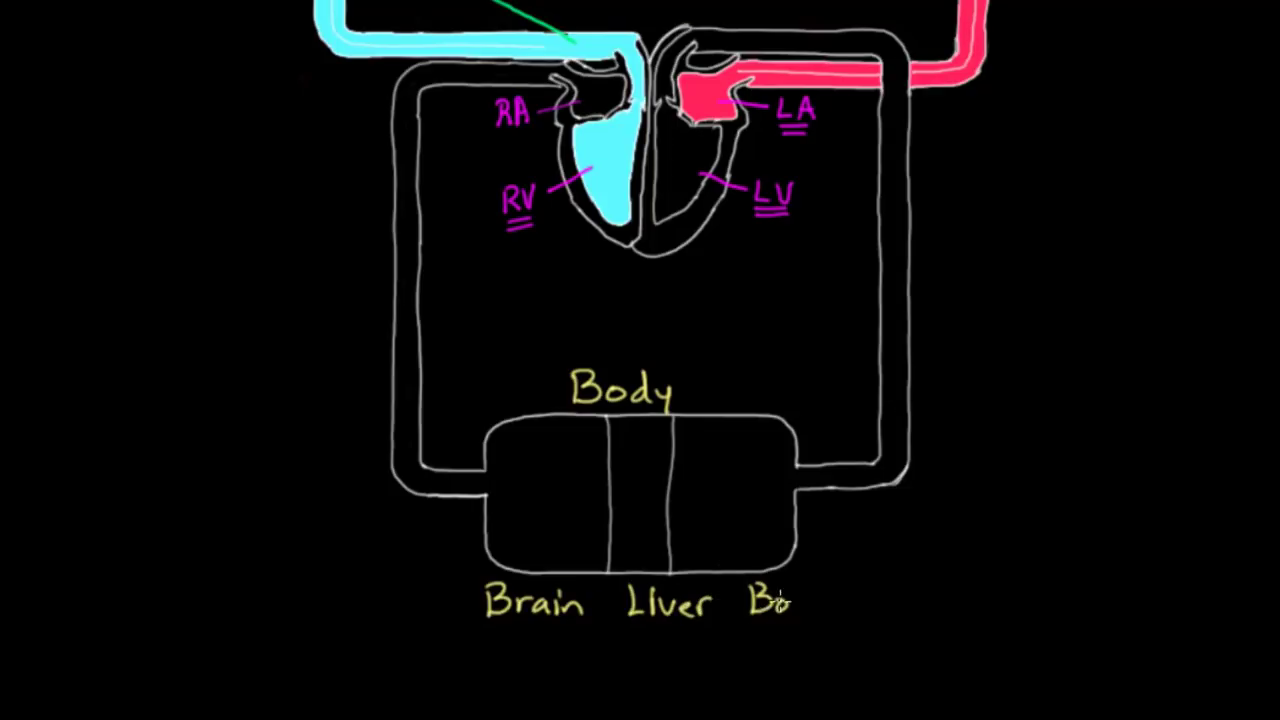 RA
LA
RV
LV
Body
Brain Liver Bo